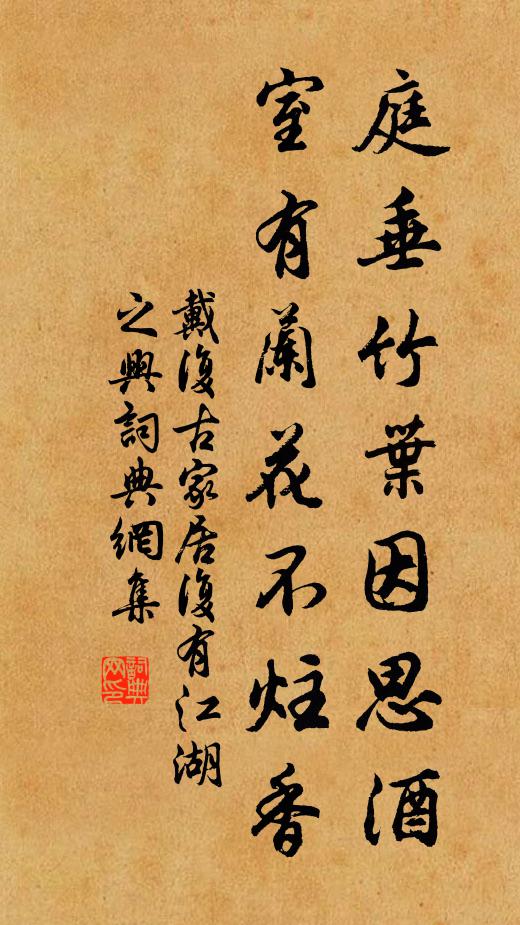 庭垂竹葉因思酒
室有蘭花不炷香
戴復古家居復有江湖
之興詞典網集
詞典網印